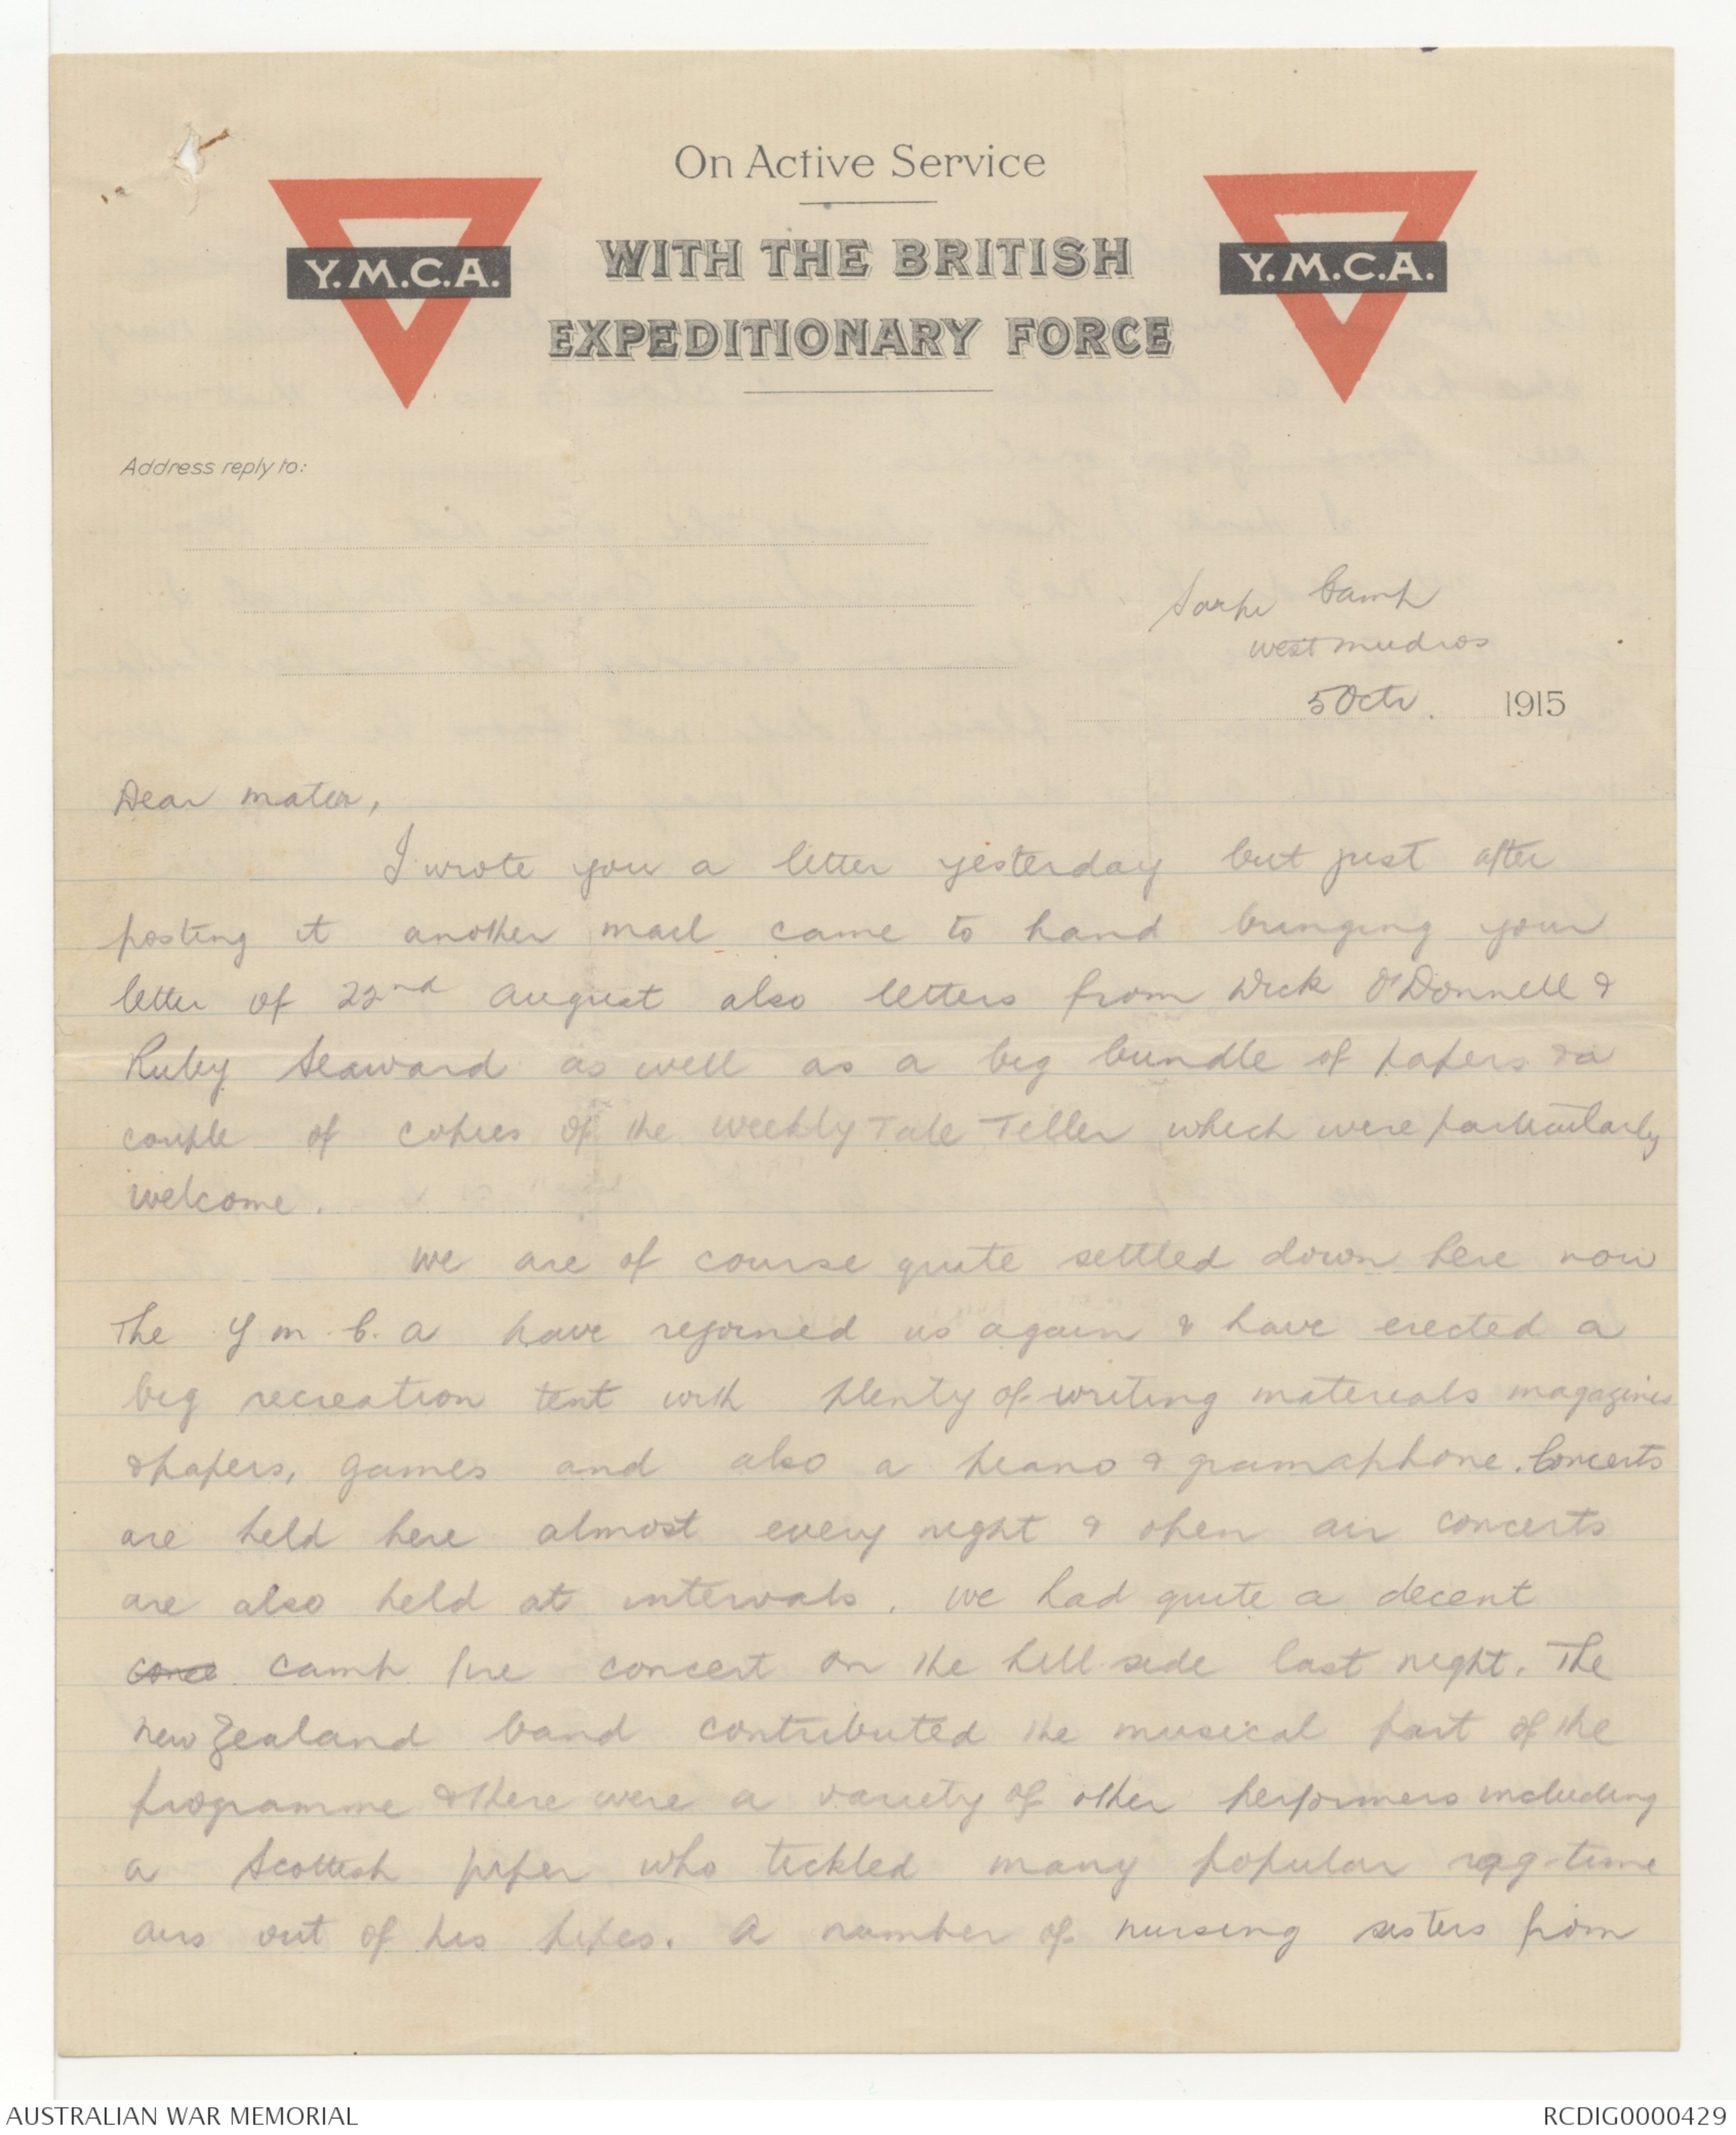 On Active Service
WITH THE BRITISH
EXPEDITIONARY FORCE
Y.M.C.A.
Y.M.C.A.
Address reply to:
Sarpi Camp
West Mudros
5 Octr. 1915
Dear mater,
I wrote you a letter yesterday but just after
posting it another mail came to hand bringing your
letter of 22nd August also letters from Dick O'Donnell &
Ruby Seaward as well as a big bundle of papers & a
couple of copies of the Weekly Tale Teller which were particularly
welcome.
We are of course quite settled down here now
The Y M. C. A have rejoined us again & have erected a
big recreation tent with plenty of writing materials magazines
& papers, games and also a piano & gramaphone. Concerts
are held here almost every night & open air concerts
are also held at intervals. We had quite a decent
conce camp fire concert on the hill side last night. The
New Zealand band contributed the musical part of the
programme & there were a variety of other performers including
a Scottish piper who tickled many popular rag-time
airs out of his pipes. A number of nursing sisters from
AUSTRALIAN WAR MEMORIAL
RCDIG0000429